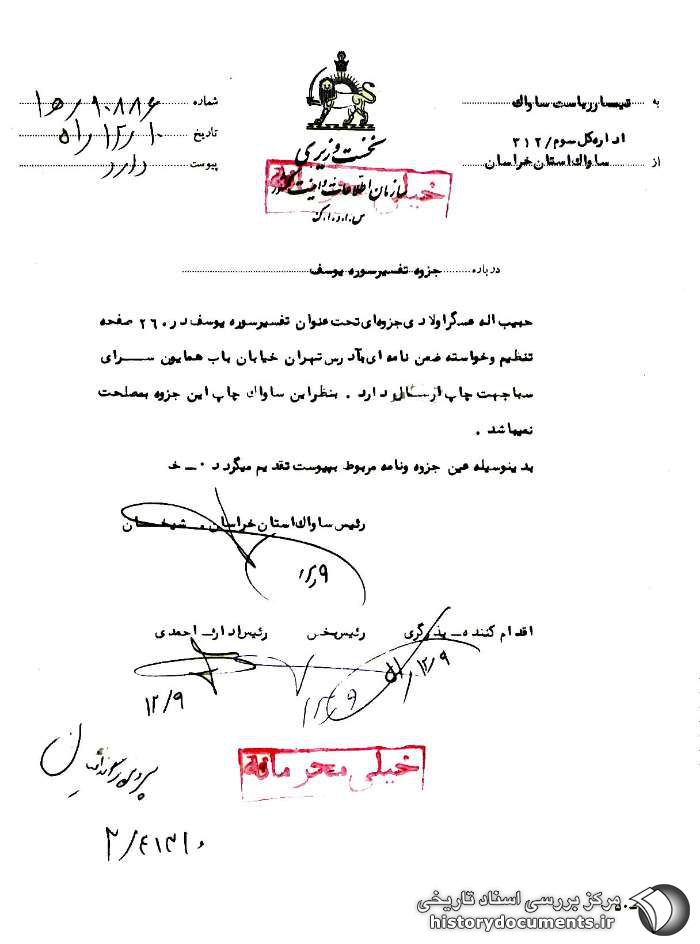 به تیمسار ریاست ساواک
اداره کل سوم/۳۱۲
از ساواک استان خراسان
نخست وزیری
سازمان اطلاعات و امنیت کشور
س.ا.و.ا.ک
خیلی محرمانه
شماره ۹۰۸۸۶
تاریخ ۱۰/۱۲/۵۱
پیوست دارد
درباره جزوه تفسیر سوره یوسف
حبیب اله عسگراولادی جزوه‌ای تحت عنوان تفسیر سوره یوسف در ۲۶۰ صفحه
تنظیم و خواسته ضمن نامه ای بآدرس تهران خیابان باب همایون سرای
سبا جهت چاپ ارسال دارد . بنظر این ساواک چاپ این جزوه بمصلحت
نمیباشد .
بدینوسیله عین جزوه و نامه مربوط بپیوست تقدیم میگردد ۰ـ خ
رئیس ساواک استان خراسان ـ شیخان
۱۲/۹
اقدام کننده ـ پذیرگری رئیس بخش رئیس اداره ـ احمدی
۱۲/۹
۱۲/۹
۱۲/۹
خیلی محرمانه
مرکز بررسی اسناد تاریخی
historydocuments.ir